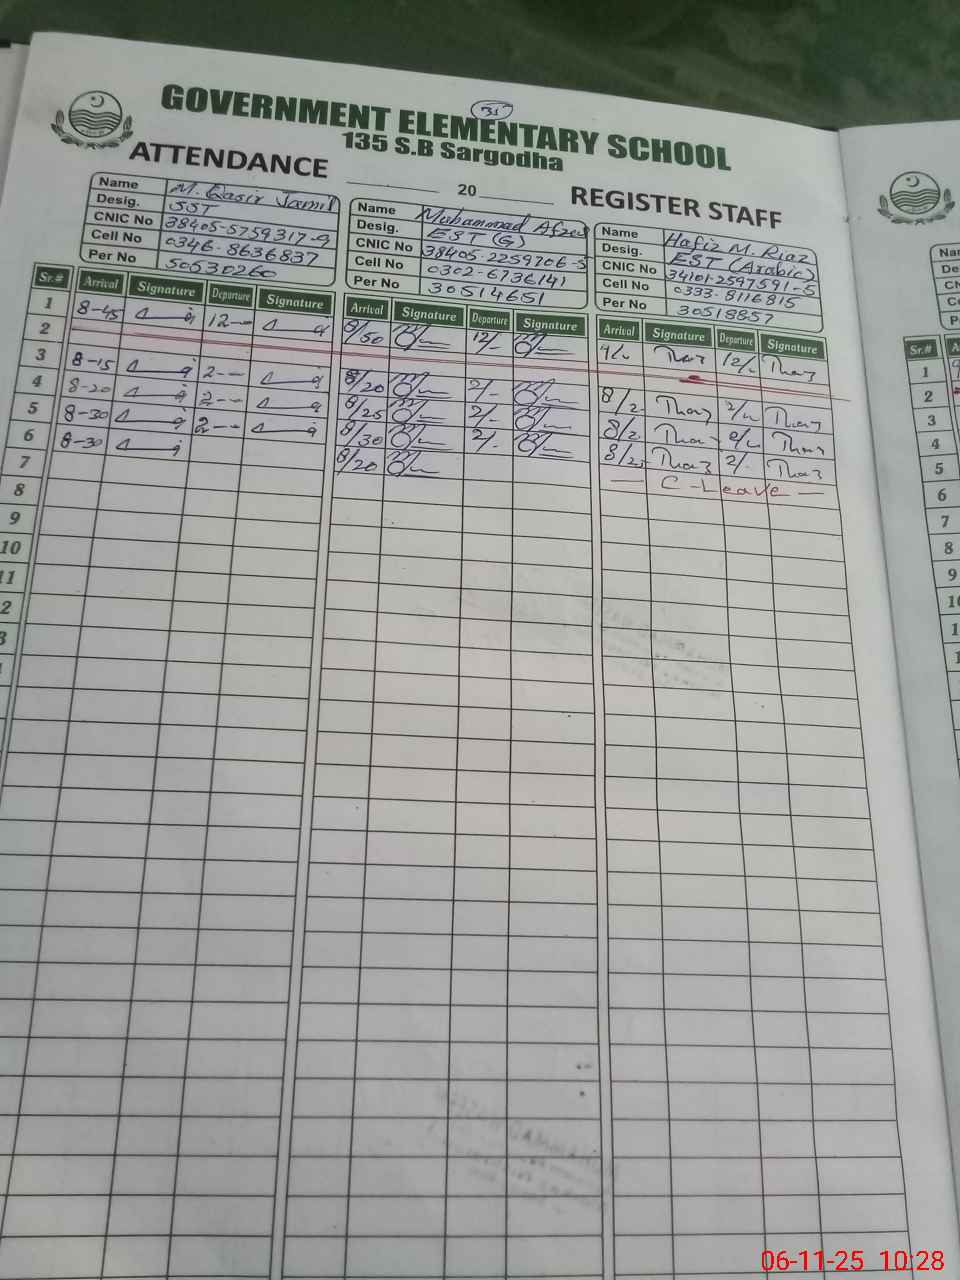 31
GOVERNMENT ELEMENTARY SCHOOL
135 S.B Sargodha
ATTENDANCE 20 REGISTER STAFF
Name M. Qasir Jamil
Desig. SST
CNIC No 38405-5759317-9
Cell No 0346-8636837
Per No 50530260
Name Mohammad Afzal
Desig. EST (G)
CNIC No 38405-2259706-5
Cell No 0302-6736141
Per No 30514651
Name Hafiz M. Riaz
Desig. EST (Arabic)
CNIC No 34101-2597591-5
Cell No 0333-8116815
Per No 30518857
Sr.# Arrival Signature Departure Signature Arrival Signature Departure Signature Arrival Signature Departure Signature
1 8-45 12-- 8/50 12/-
2
3 8-15 2-- 8/20 2/-
4 8-20 2-- 8/25 2/-
5 8-30 2-- 8/30 2/-
6 8-30 8/20 C-Leave
7
8
9
10
11
2
3
Sr.#
1
2
3
4
5
6
7
8
9
1
1
1
06-11-25 10:28